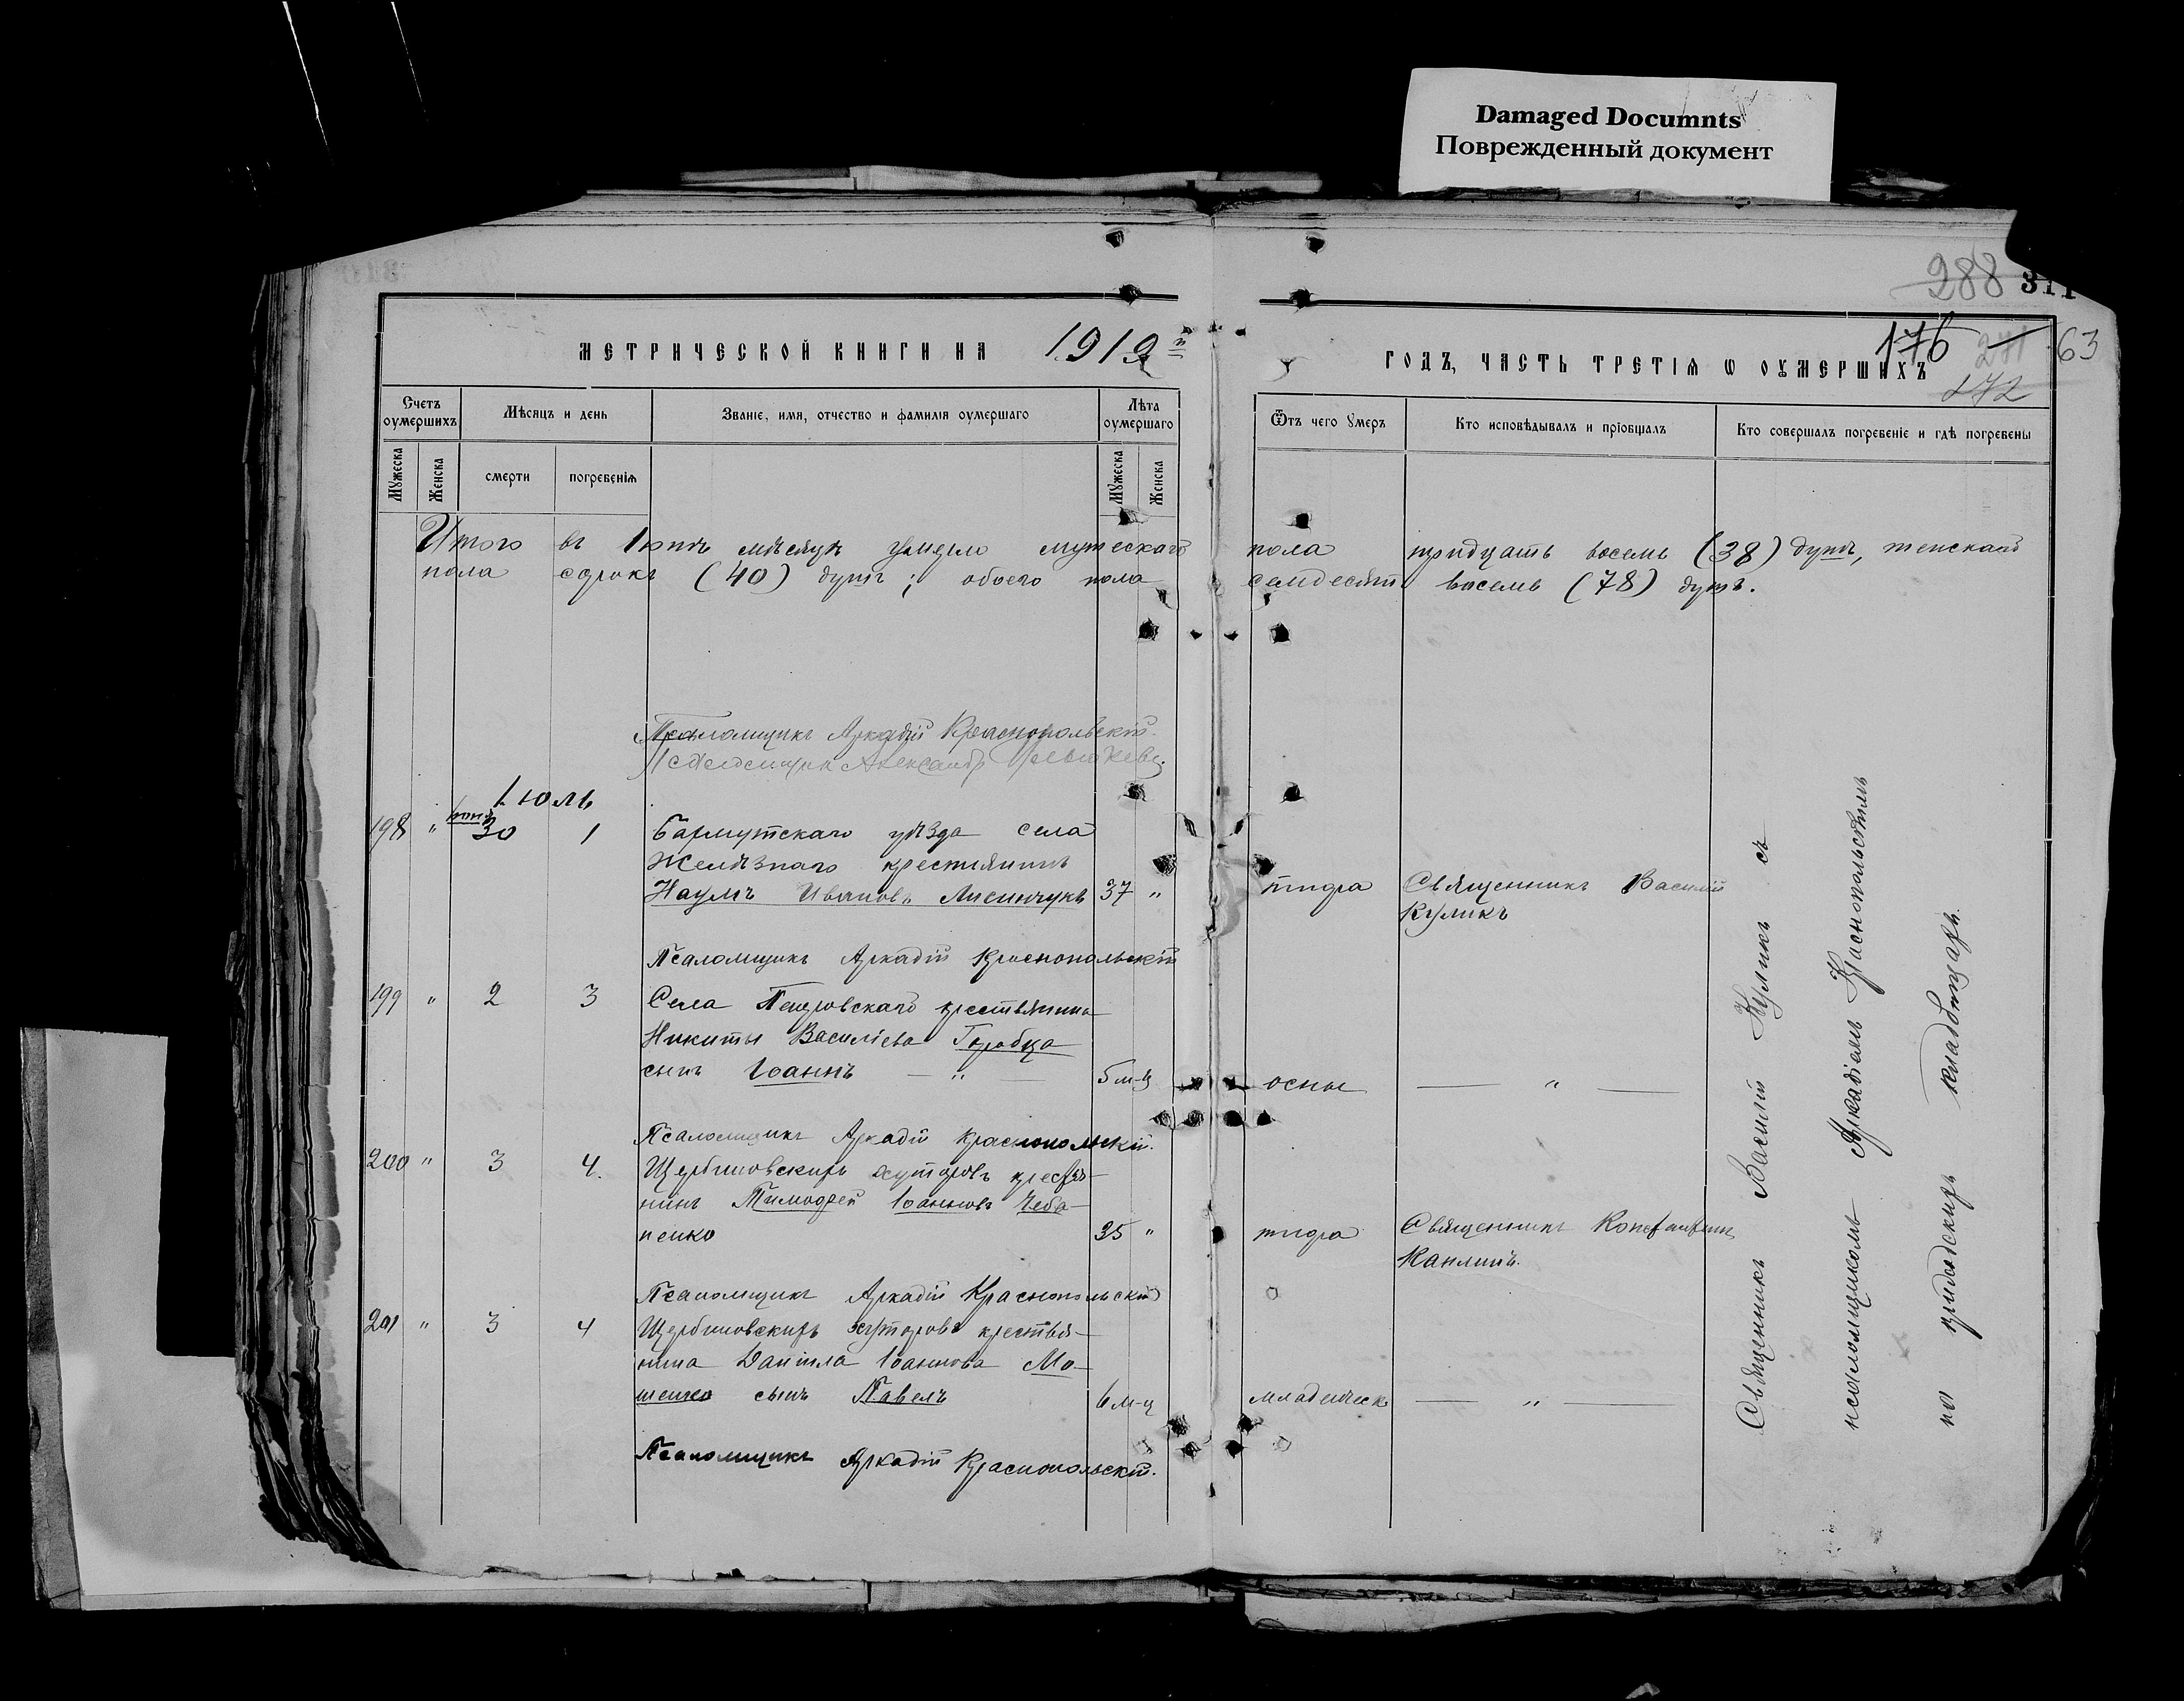 Damaged Documnts
Поврежденный документ
288 311
176 271 63
272
МЕТРИЧЕСКОЙ КНИГИ НА 1919й ГОДЪ, ЧАСТЬ ТРЕТІЯ Ѡ ОУМЕРШИХЪ
Счетъ оумершихъ
Мѣсяцъ и день
Званіе, имя, отчество и фамилія оумершаго
Лѣта оумершаго
Ѿтъ чего Умеръ
Кто исповѣдывалъ и пріобщалъ
Кто совершалъ погребеніе и гдѣ погребены
Мꙋжеска
Женска
смерти
погребенія
Мꙋжеска
Женска
Итого въ Іюнѣ мѣсяцѣ умерло мужескаго пола тридцать восемь (38) душъ, женскаго
пола сорокъ (40) душъ; обоего пола семдесятъ восемь (78) душъ.
Псаломщикъ Аркадій Краснопольскій.
Псаломщик Александръ
Іюль
198 " Іюня 30 1 Бахмутскаго уѣзда села
Желѣзнаго крестьянинъ
Наумъ Ивановъ Лисинчукъ 37 " тифа Священникъ Василій
Куликъ
Псаломщикъ Аркадій Краснопольскій
199 " 2 3 Села Петровскаго крестьянина
Никиты Василіева Горобца
сынъ Іоаннъ — " — 5 м-ц осны — " —
Псаломщикъ Аркадій Краснопольскій.
200 " 3 4. Щербиновскихъ хуторовъ крестья-
нинъ Тимофей Іоанновъ Чеба-
ненко 35 " тифа Священникъ Константинъ
Каплинъ.
Псаломщикъ Аркадій Краснопольскій
201 " 3 4 Щербиновскихъ хуторовъ крестья-
нина Даніила Іоаннова Мо-
шенко сынъ Павелъ 6 м-ц младенческ — " —
Псаломщикъ Аркадій Краснопольскій.
Священникъ Василій Куликъ съ
псаломщикомъ Аркадіемъ Краснопольскимъ
на приходскихъ кладбищахъ.